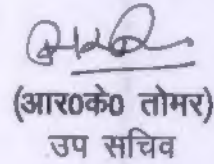 (आर0के0 तोमर)
उप सचिव